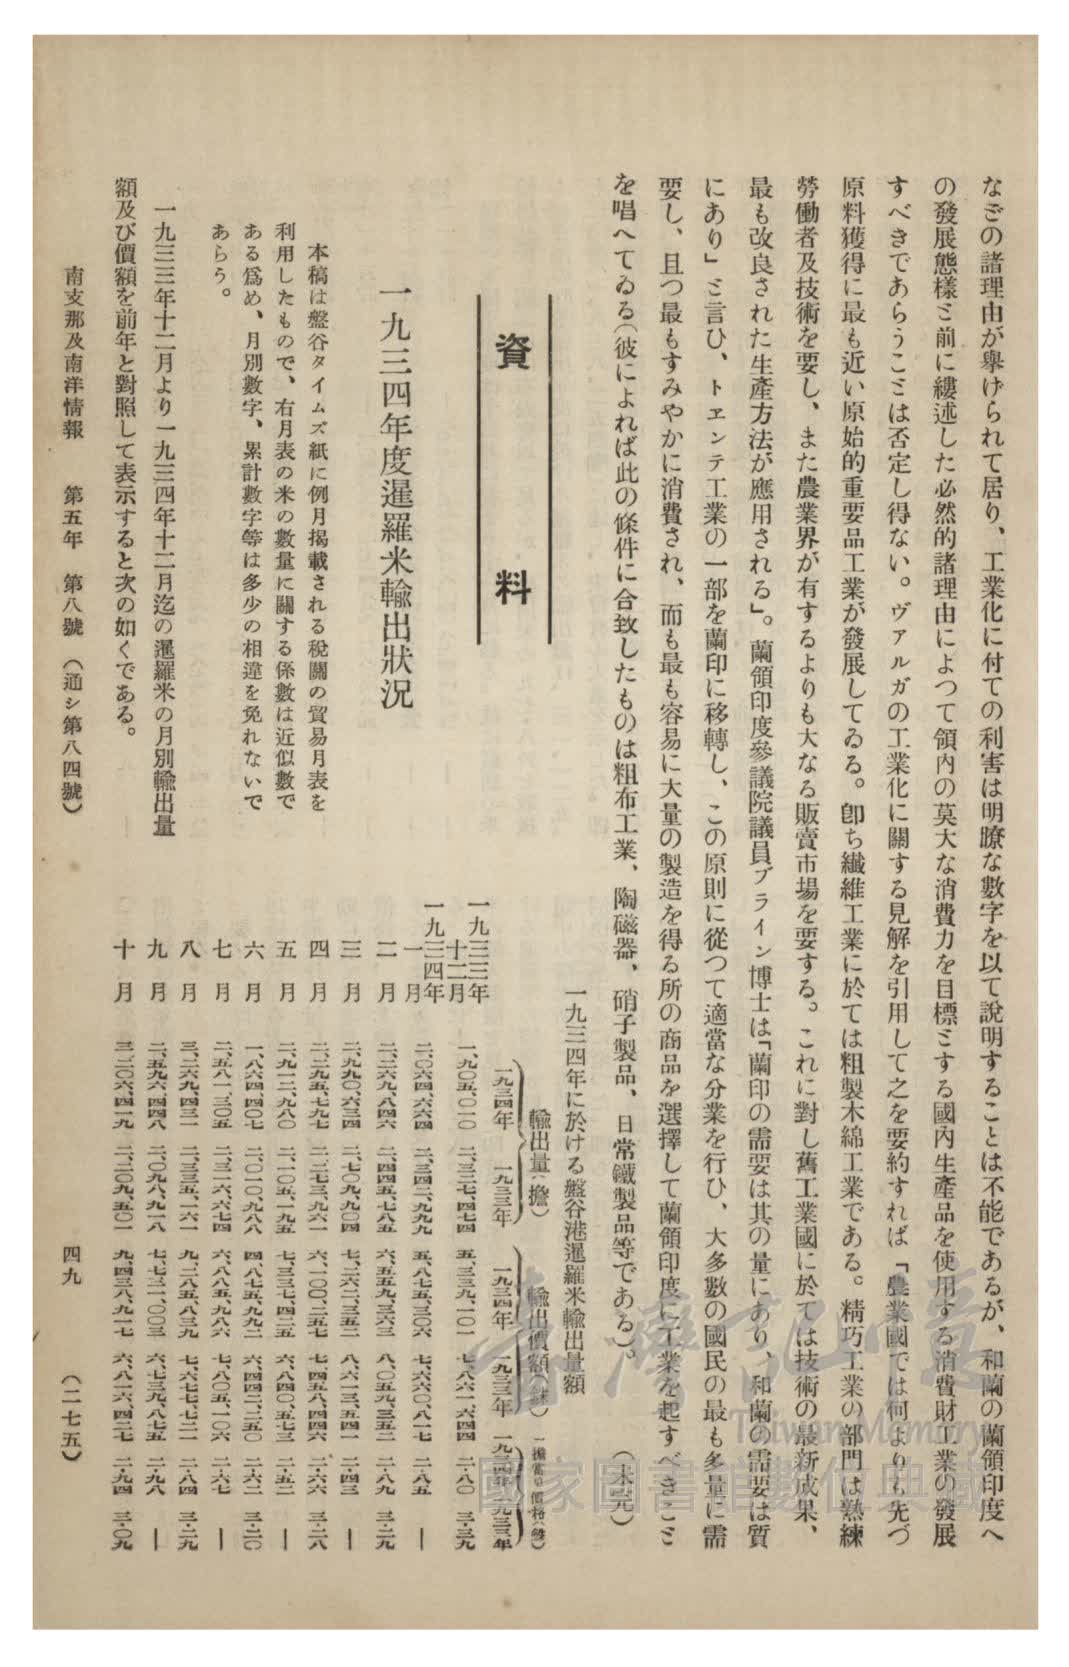 なごの諸理由が擧げられて居り、工業化に付ての利害は明瞭な數字を以て說明することは不能であるが、和蘭の蘭領印度へ
の發展態樣ミ前に縷述した必然的諸理由によつて領內の莫大な消費力を目標ミする國內生產品を使用する消費財工業の發展
すべきであらうこミは否定し得ない。ヴァルガの工業化に關する見解を引用して之を要約すれば「農業國では何よりも先づ
原料獲得に最も近い原始的重要品工業が發展してゐる。卽ち纖維工業に於ては粗製木綿工業である。精巧工業の部門は熟練
勞働者及技術を要し、また農業界が有するよりも大なる販賣市場を要する。これに對し舊工業國に於ては技術の最新成果、
最も改良された生產方法が應用される」。蘭領印度參議院議員ブライン博士は「蘭印の需要は其の量にあり、和蘭の需要は質
にあり」ミ言ひ、トエンテ工業の一部を蘭印に移轉し、この原則に從つて適當な分業を行ひ、大多數の國民の最も多量に需
要し、且つ最もすみやかに消費され、而も最も容易に大量の製造を得る所の商品を選擇して蘭領印度に工業を起すべきこミ
を唱へてゐる(彼によれば此の條件に合致したものは粗布工業、陶磁器、硝子製品、日常鐵製品等である)。 (未完)
資料
一九三四年度暹羅米輸出狀況
本稿は盤谷タイムズ紙に例月揭載される稅關の貿易月表を
利用したもので、右月表の米の數量に關する係數は近似數で
ある爲め、月別數字、累計數字等は多少の相違を免れないで
あらう。
一九三三年十二月より一九三四年十二月迄の暹羅米の月別輸出量
額及び價額を前年と對照して表示すると次の如くである。
一九三四年に於ける盤谷港暹羅米輸出量額
輸出量(擔) 輸出價額(銖) 一擔當り價格(銖)
一九三四年 一九三三年 一九三四年 一九三三年 一九三四年 一九三三年
一九三三年
十二月 一、九〇五、〇一〇 二、三二七、四七四 五、三三九、一〇一 七、八六一、六四四 二・八〇 三・三九
一九三四年
一月 二、〇六四、六六四 二、三四二、九九九 五、八七五、三〇六 七、六六〇、八一七 二・八五 ―
二月 二、二六九、八四六 二、四四五、七八五 六、五五九、三六三 八、〇五九、三五二 二・八九 三・二九
三月 二、九九〇、六三四 二、七〇九、九〇四 七、二六二、三五二 八、六一三、五四一 二・四三 ―
四月 二、二九五、七九七 二、二七三、九六一 六、一〇〇、二五七 七、四五八、四四六 二・六六 三・二八
五月 二、九一二、九八〇 二、一〇五、一九五 七、三三七、四二五 六、八四〇、五七三 二・五二 ―
六月 一、八六四、四〇七 二、〇一〇、九八八 四、八七五、九九二 六、四四二、二五〇 二・六二 三・二〇
七月 二、五八一、三〇五 二、三一六、六七四 六、八八五、九八六 七、八〇五、一〇六 二・六七 ―
八月 三、二六九、四三一 二、三三五、一六一 九、二八五、八三九 七、六七七、七二一 二・八四 三・二九
九月 二、五九六、四四八 二、〇九八、九一八 七、七三一、〇〇三 六、七三九、八七五 二・九八 ―
十月 三、二〇六、四一九 二、二〇九、五〇一 九、四三八、九一七 六、八一六、四二七 二・九四 三・〇九
南支那及南洋情報 第五年 第八號 (通シ第八四號) 四九 (二七五)
臺灣記憶
Taiwan Memory
國家圖書館數位典藏